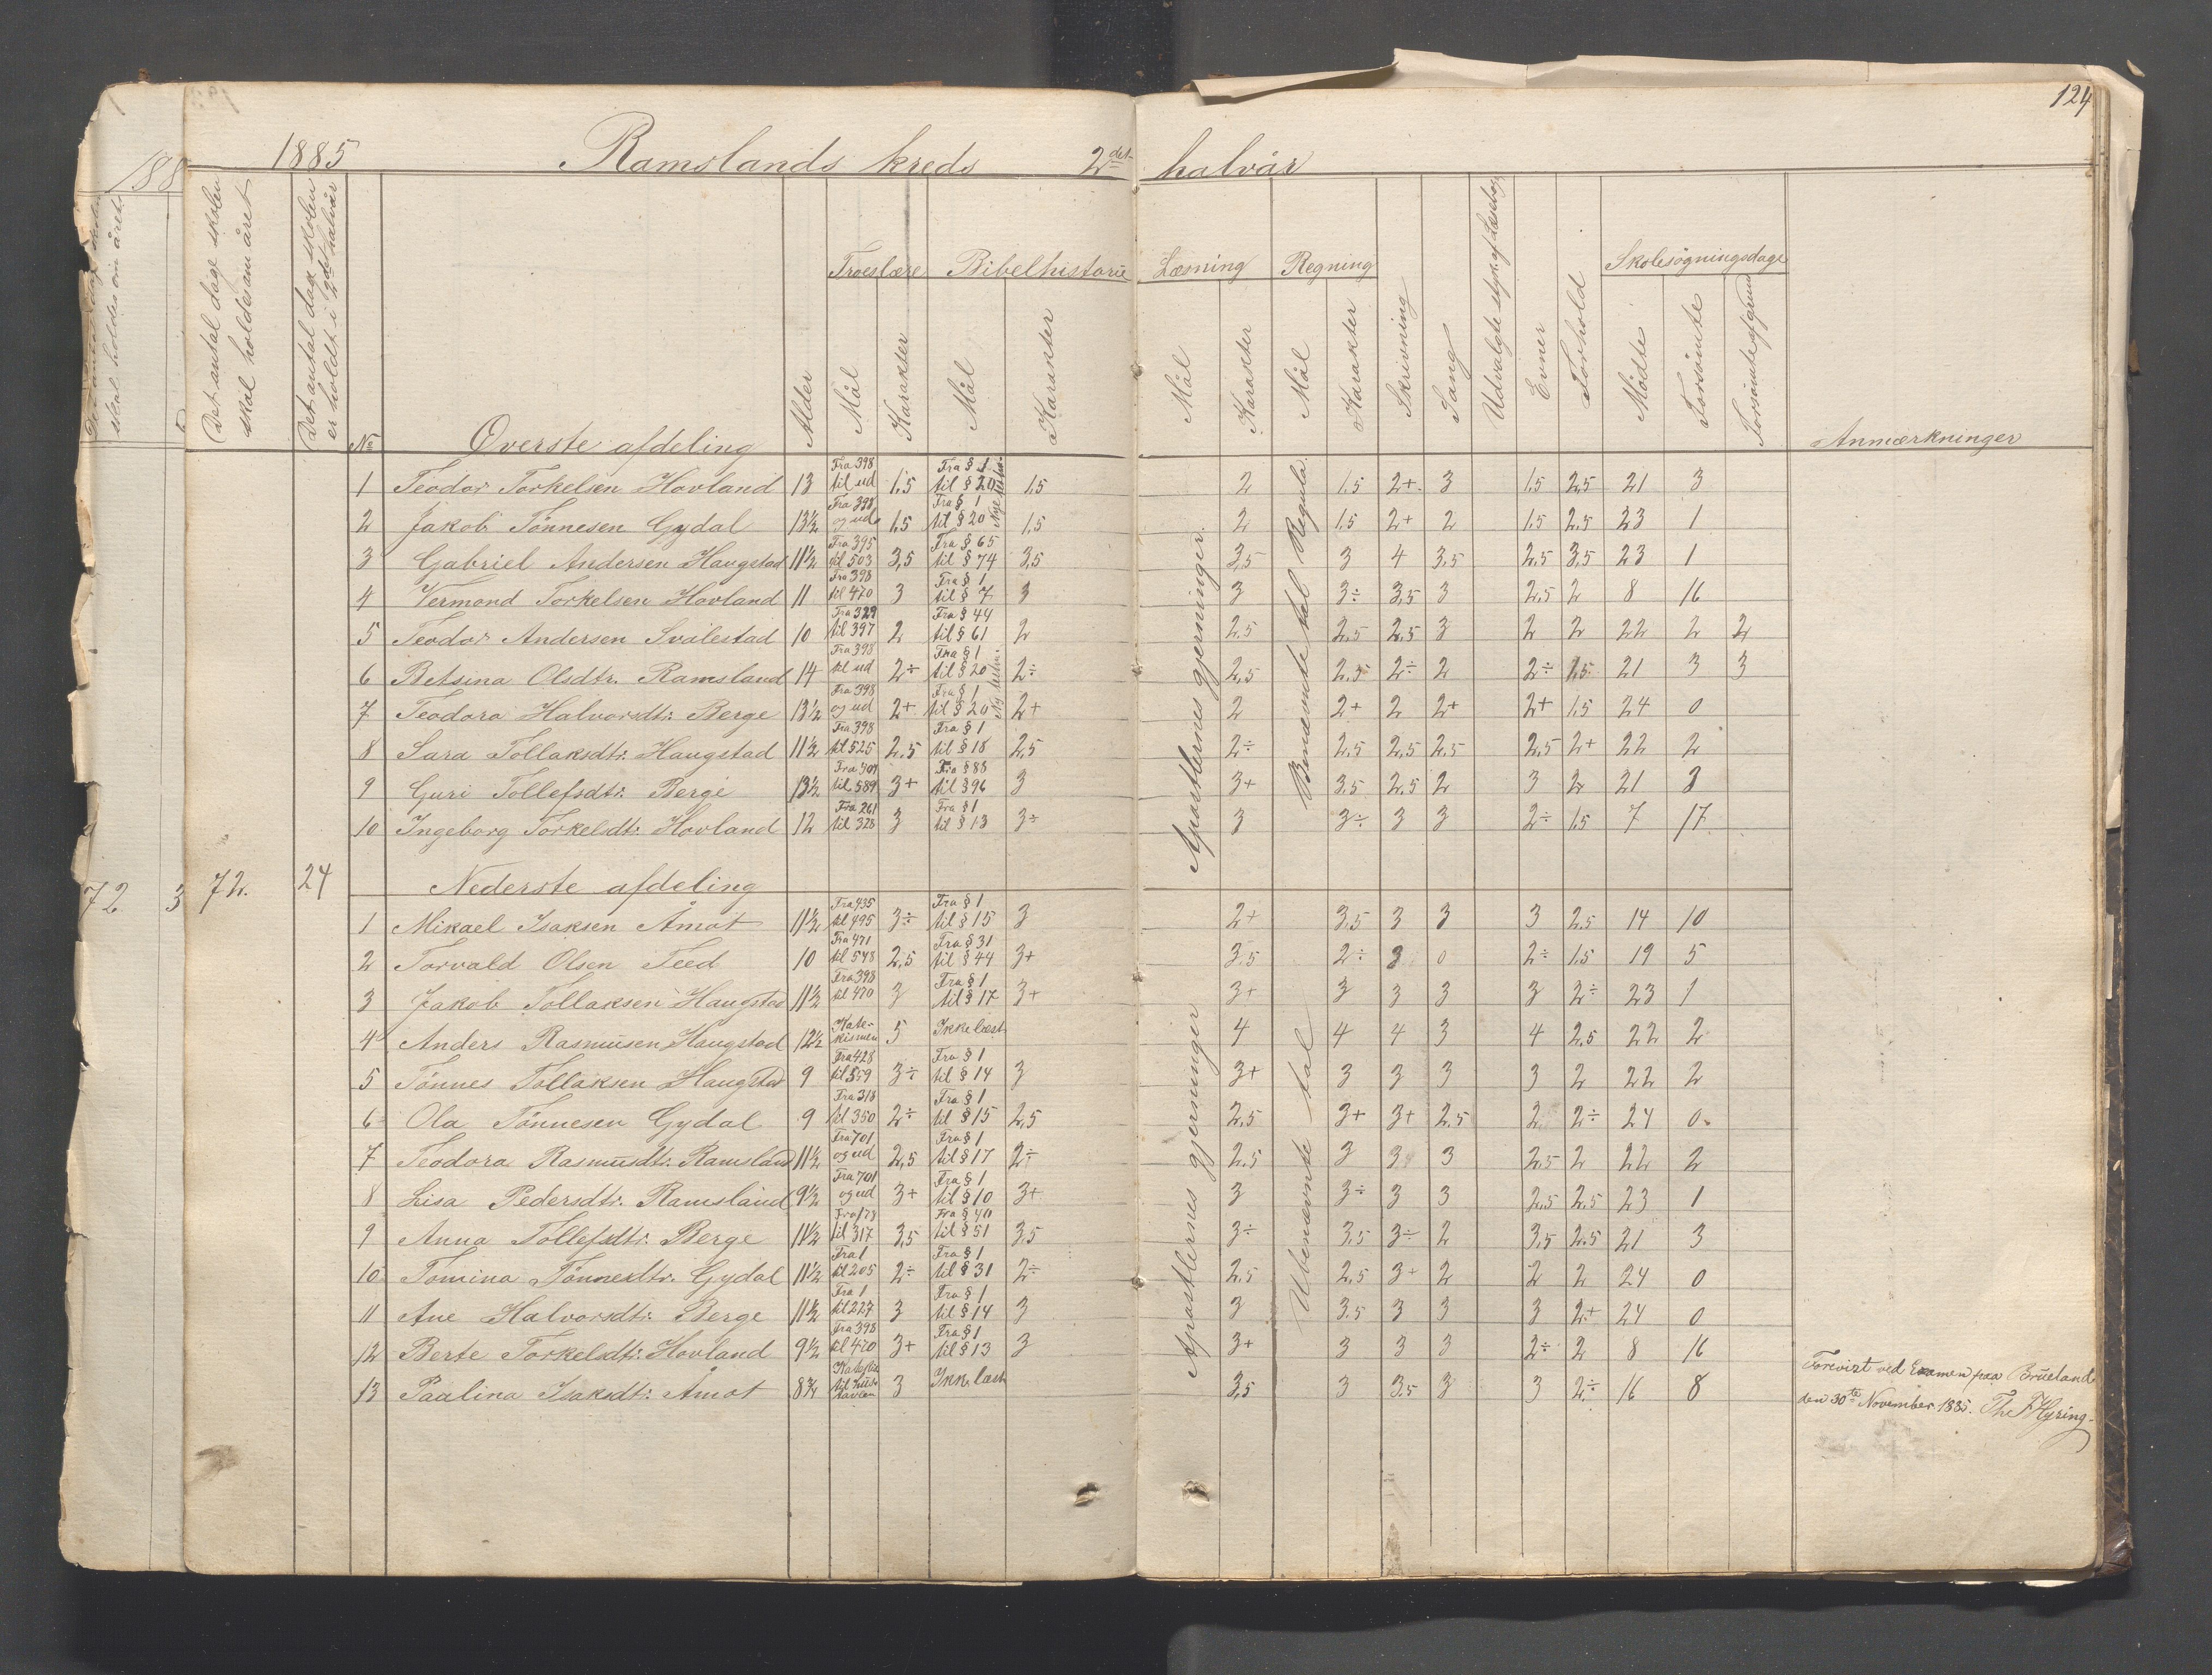 124
1885 Ramslands kreds 2det halvår
Det antal dage skolen skal holdes om året
Det antal dage skolen er holdt i 2det halvår
No
Overste afdeling
Alder
Troeslære
Mål
Karakter
Bibelhistorie
Mål
Karakter
Læsning
Mål
Karakter
Regning
Mål
Karakter
Skrivning
Sang
Udvalgte styk. af Læsebog
Evner
Forhold
Skolesøgningsdage
Mødte
Forsømte
Forsømte af grund
Anmærkninger
Apostlernes gjerninger
Benævnte tal Regula
1 Teodor Torkelsen Hovland 13 Fra 398 til ud 1,5 Fra § 1 til § 20 1,5 2 1,5 2+ 3 1,5 2,5 21 3
2 Jakob Tønnesen Gydal 13½ Fra 398 og ud 1,5 Fra § 1 til § 20 1,5 2 1,5 2+ 2 1,5 2,5 23 1
3 Gabriel Andersen Haugstad 11½ Fra 395 til 503 3,5 Fra § 65 til § 74 3,5 3,5 3 4 3,5 2,5 3,5 23 1
4 Vermond Torkelsen Hovland 11 Fra 398 til 470 3 Fra § 1 til § 7 3 3 3÷ 3,5 3 2,5 2 8 16
5 Teodor Andersen Svalestad 10 Fra 329 til 397 2 Fra § 44 til § 61 2 2,5 2,5 2,5 3 2 2 22 2 2
6 Betsina Olsdtr. Ramsland 14 Fra 398 til ud 2÷ Fra § 1 til § 20 2÷ 2,5 2,5 2÷ 2 2÷ 1,5 21 3 3
7 Teodora Halvorsdtr: Berge 13½ Fra 398 og ud 2+ Fra § 1 til § 20 2+ 2 2+ 2 2+ 2+ 1,5 24 0
8 Sara Tollaksdtr: Haugstad 11½ Fra 398 til 525 2,5 Fra § 1 til § 18 2,5 2÷ 2,5 2,5 2,5 2,5 2+ 22 2
9 Guri Tollefsdtr: Berge 13½ til 589 3+ Fra § 88 til § 96 3 3+ 3,5 2,5 2 3 2 21 3
10 Ingeborg Torkelsdtr: Hovland 12 Fra 261 til 328 3 Fra § 1 til § 13 3÷ 3 3÷ 3 3 2÷ 1,5 7 17
72. 24
Nederste afdeling
Apostlernes gjerninger
Ubenævnte tal
1 Mikael Isaksen Åmot 11½ Fra 435 til 495 3÷ Fra § 1 til § 15 3 2+ 3,5 3 3 3 2,5 14 10
2 Torvald Olsen Teed 10 Fra 471 til 548 2,5 Fra § 31 til § 44 3+ 3,5 2÷ 3 0 2÷ 1,5 19 5
3 Jakob Tollaksen Haugstad 11½ Fra 398 til 470 3 Fra § 1 til § 17 3+ 3+ 3 3 3 3 2÷ 23 1
4 Anders Rasmusen Haugstad 12½ Katekismen 5 Ikke læst 4 4 4 3 4 2,5 22 2
5 Tønnes Tollaksen Haugstad 9 Fra 428 til 559 3÷ Fra § 1 til § 14 3 3+ 3 3 3 3 2 22 2
6 Ola Tønnesen Gydal 9 Fra 318 til 350 2÷ Fra § 1 til § 15 2,5 2,5 3+ 3+ 2,5 2 2÷ 24 0
7 Teodora Rasmusdtr: Ramsland 11½ Fra 701 og ud 2,5 Fra § 1 til § 17 2÷ 2,5 3 3 3 2,5 2 22 2
8 Lisa Pedersdtr: Ramsland 9½ Fra 701 og ud 3+ Fra § 1 til § 10 3+ 3 3÷ 3 3 2,5 2,5 23 1
9 Anna Tollefsdtr: Berge 11½ Fra 178 til 317 3,5 Fra § 40 til § 51 3,5 3÷ 3,5 3÷ 2 3,5 2,5 21 3
10 Tomina Tønnesdtr. Gydal 11½ Fra 1 til 205 2÷ Fra § 1 til § 31 2÷ 2,5 2,5 3+ 2 2 2 24 0
11 Ane Halvorsdtr: Berge 11½ Fra 1 til 227 3 Fra § 1 til § 14 3 3 3,5 3 3 3 2+ 24 0
12 Berte Torkelsdtr: Hovland 9½ Fra 398 til 470 3+ Fra § 1 til § 13 3 3+ 3 3 3 2÷ 2 8 16
13 Paalina Isaksdtr: Åmot 8¾ 3 Ikke læst 3,5 3 3,5 3 3 2÷ 16 8
Forevist ved Examen paa Brueland
den 30te November 1885. Th. F Hyring